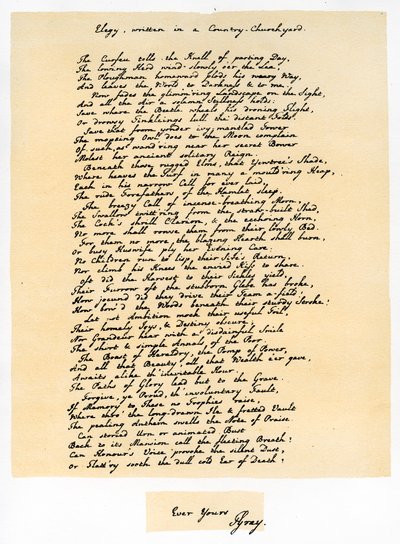 Elegy, written in a Country-Churchyard.
The Curfeu tolls the Knell of parting Day,
The lowing Herd wind slowly o'er the Lea,
The Ploughman homeward plods his weary Way,
And leaves the World to Darkness & to me.
Now fades the glimm'ring Landscape on the Sight,
And all the Air a solemn Stillness holds:
Save where the Beetle wheels his droning Flight,
Or drowsy Tinklings lull the distant Folds.
Save that from yonder ivy-mantled Tower
The mopeing Owl does to the Moon complain
Of such, as wand'ring near her secret Bower
Molest her ancient solitary Reign.
Beneath those rugged Elms, that Yewtree's Shade,
Where heaves the Turf in many a mould'ring Heap,
Each in his narrow Cell for ever laid,
The rude Forefathers of the Hamlet sleep.
The breezy Call of incense-breathing Morn,
The Swallow twitt'ring from the straw-built Shed,
The Cock's shrill Clarion, & the ecchoing Horn,
No more shall rowse them from their lowly Bed.
For them no more the blazing Hearth shall burn,
Or busy Huswife ply her Evening Care:
No Children run to lisp their Sire's Return,
Nor climb his Knees the envied Kiss to share.
Oft did the Harvest to their Sickle yield,
Their Furrow oft the stubborn Glebe has broke,
How jocund did they drive their Team a-field!
How bow'd the Woods beneath their sturdy Stroke!
Let not Ambition mock their useful Toil,
Their homely Joys, & Destiny obscure;
Nor Grandeur hear with a disdainful Smile
The short & simple Annals of the Poor.
The Boast of Heraldry, the Pomp of Power,
And all that Beauty, all that Wealth e'er gave,
Awaits alike th' inevitable Hour.
The Paths of Glory lead but to the Grave.
Forgive, ye Proud, th' involuntary Fault,
If Memory to These no Trophies raise,
Where thro' the long-drawn Ile & fretted Vault
The pealing Anthem swells the Note of Praise.
Can storied Urn or animated Bust
Back to its Mansion call the fleeting Breath?
Can Honour's Voice provoke the silent Dust,
Or Flatt'ry sooth the dull cold Ear of Death?
Ever Yours
TGray.